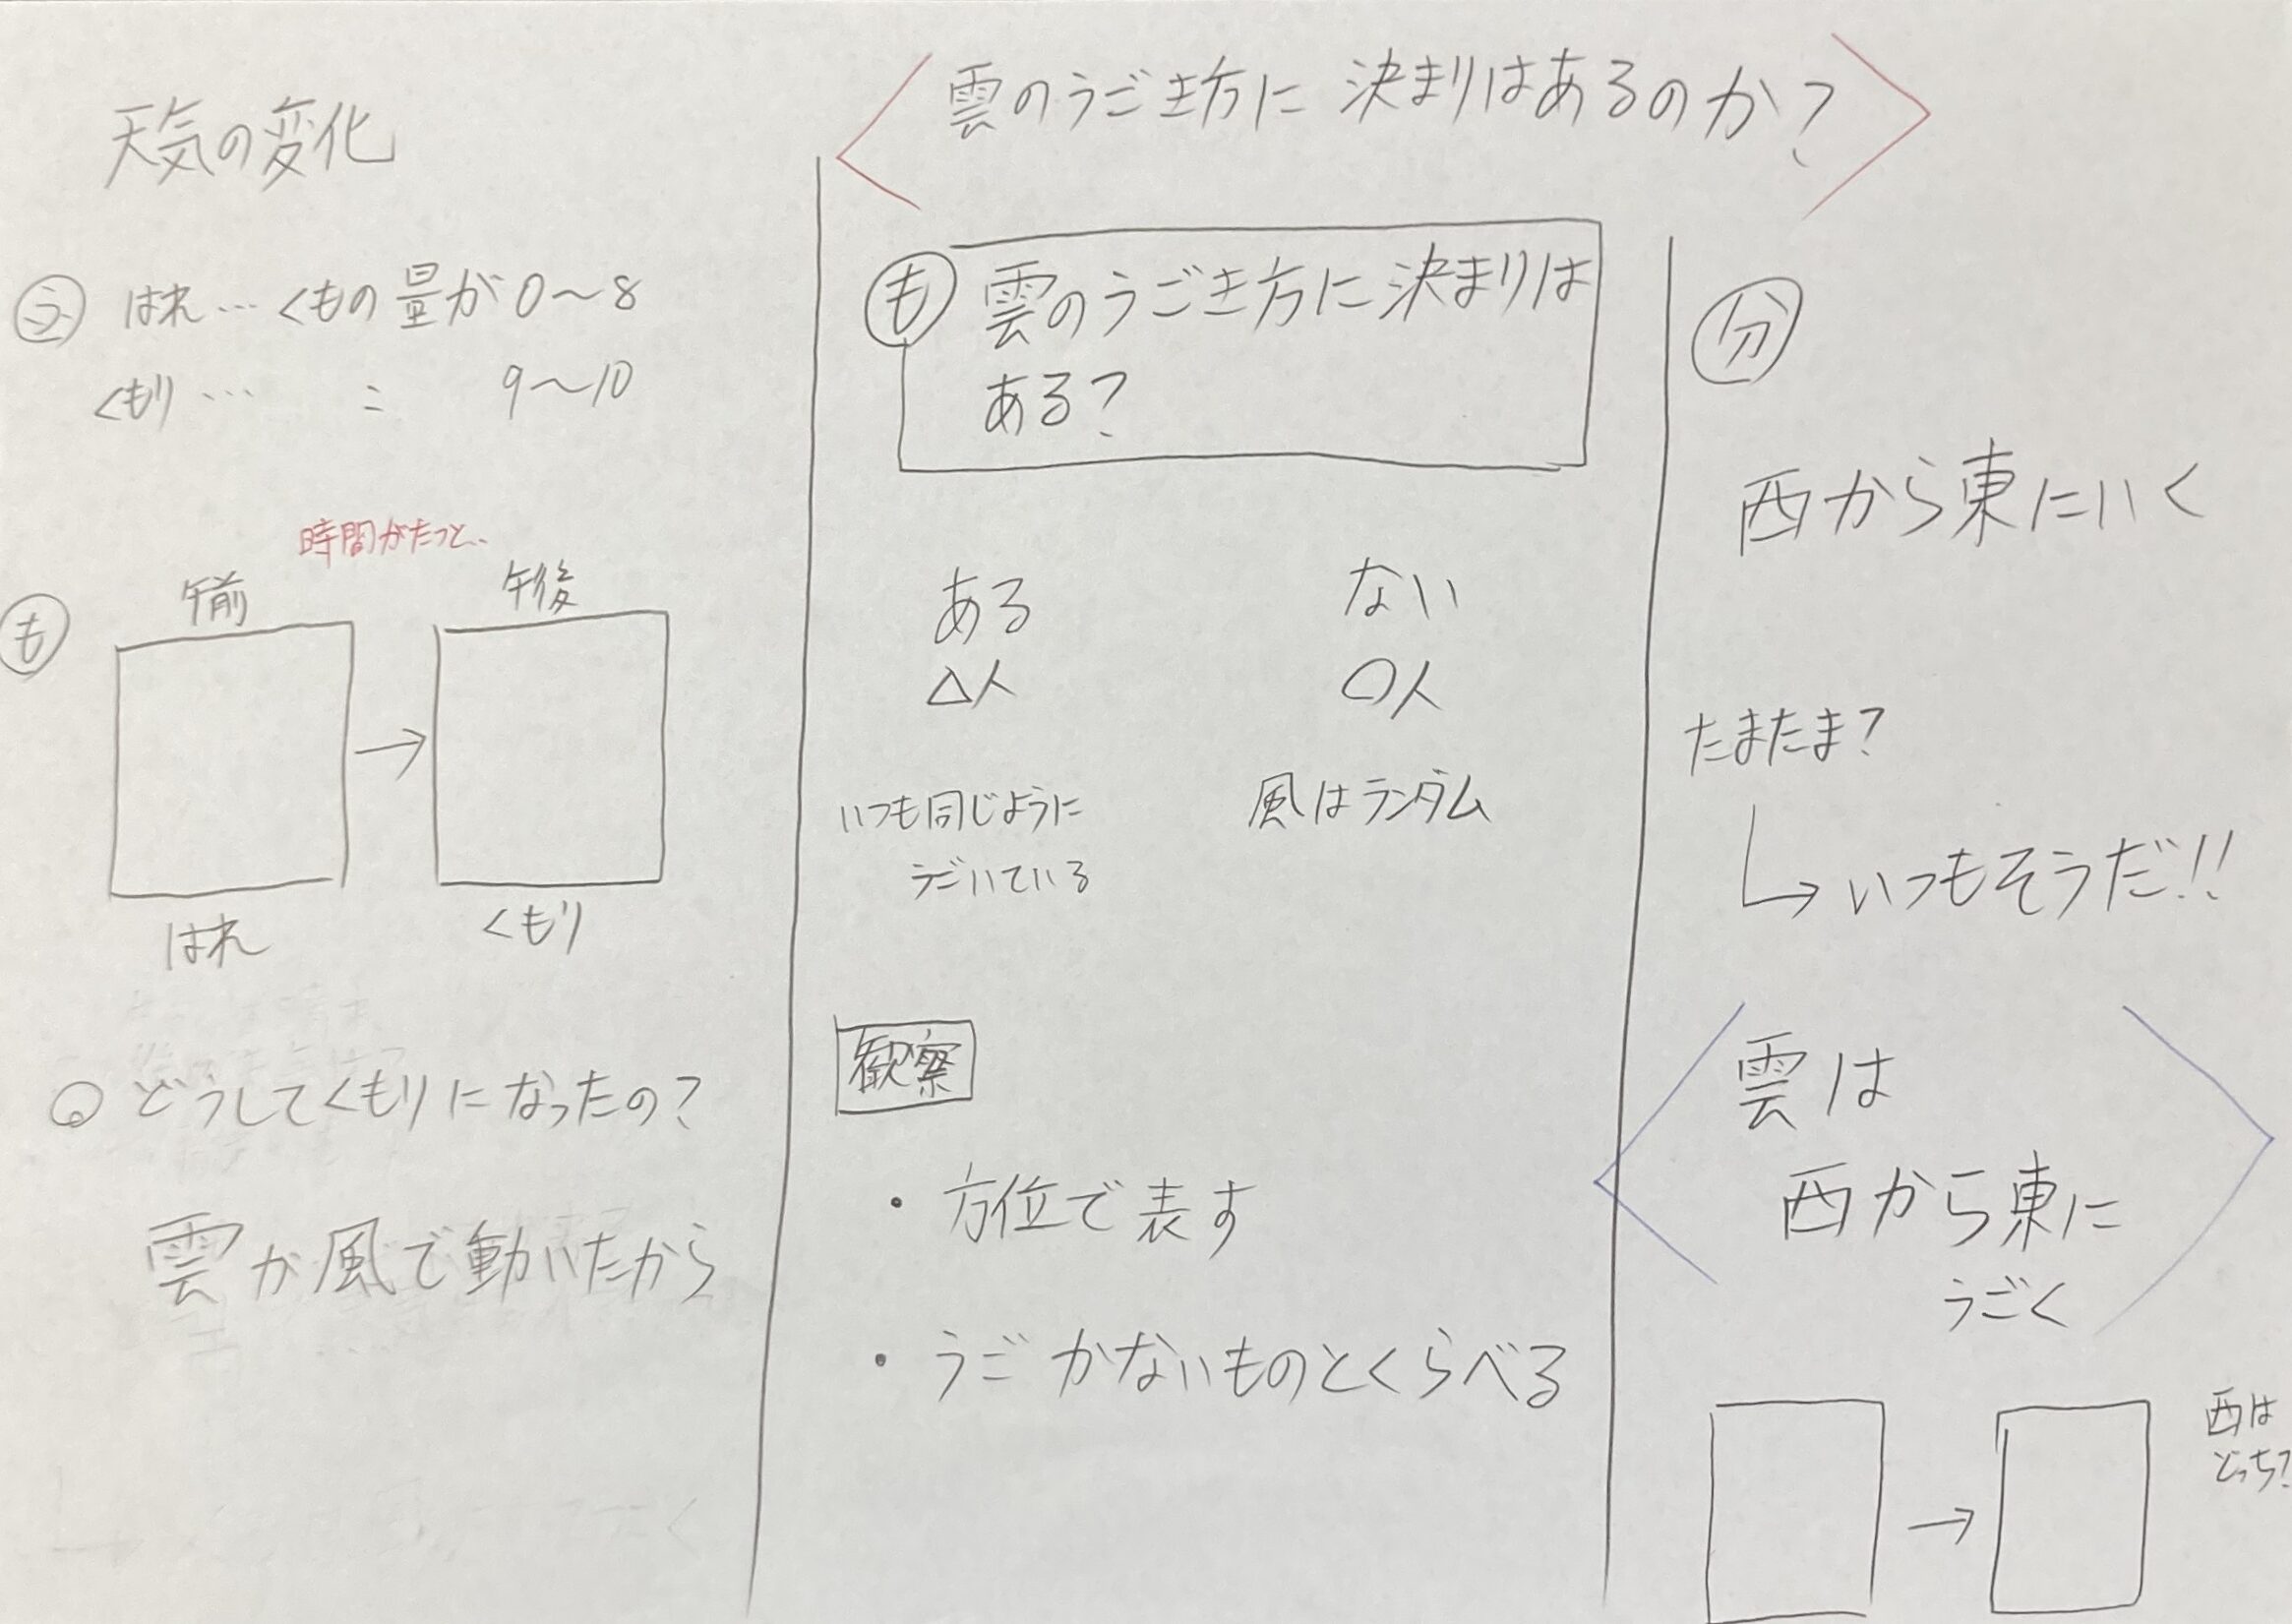 天気の変化
雲のうごき方に 決まりはあるのか?
はれ… くもの量が0〜8
くもり… 〃 9〜10
時間がたつと..
も
午前
午後
はれ
くもり
どうしてくもりになったの?
雲が風で動いたから
も 雲のうごき方に決まりは
ある?
ある
△人
いつも同じように
うごいている
ない
〇人
風はランダム
観察
・方位で表す
・うごかないものとくらべる
分
西から東にいく
たまたま?
→いつもそうだ!!
雲は
西から東に
うごく
→
西は
どっち?